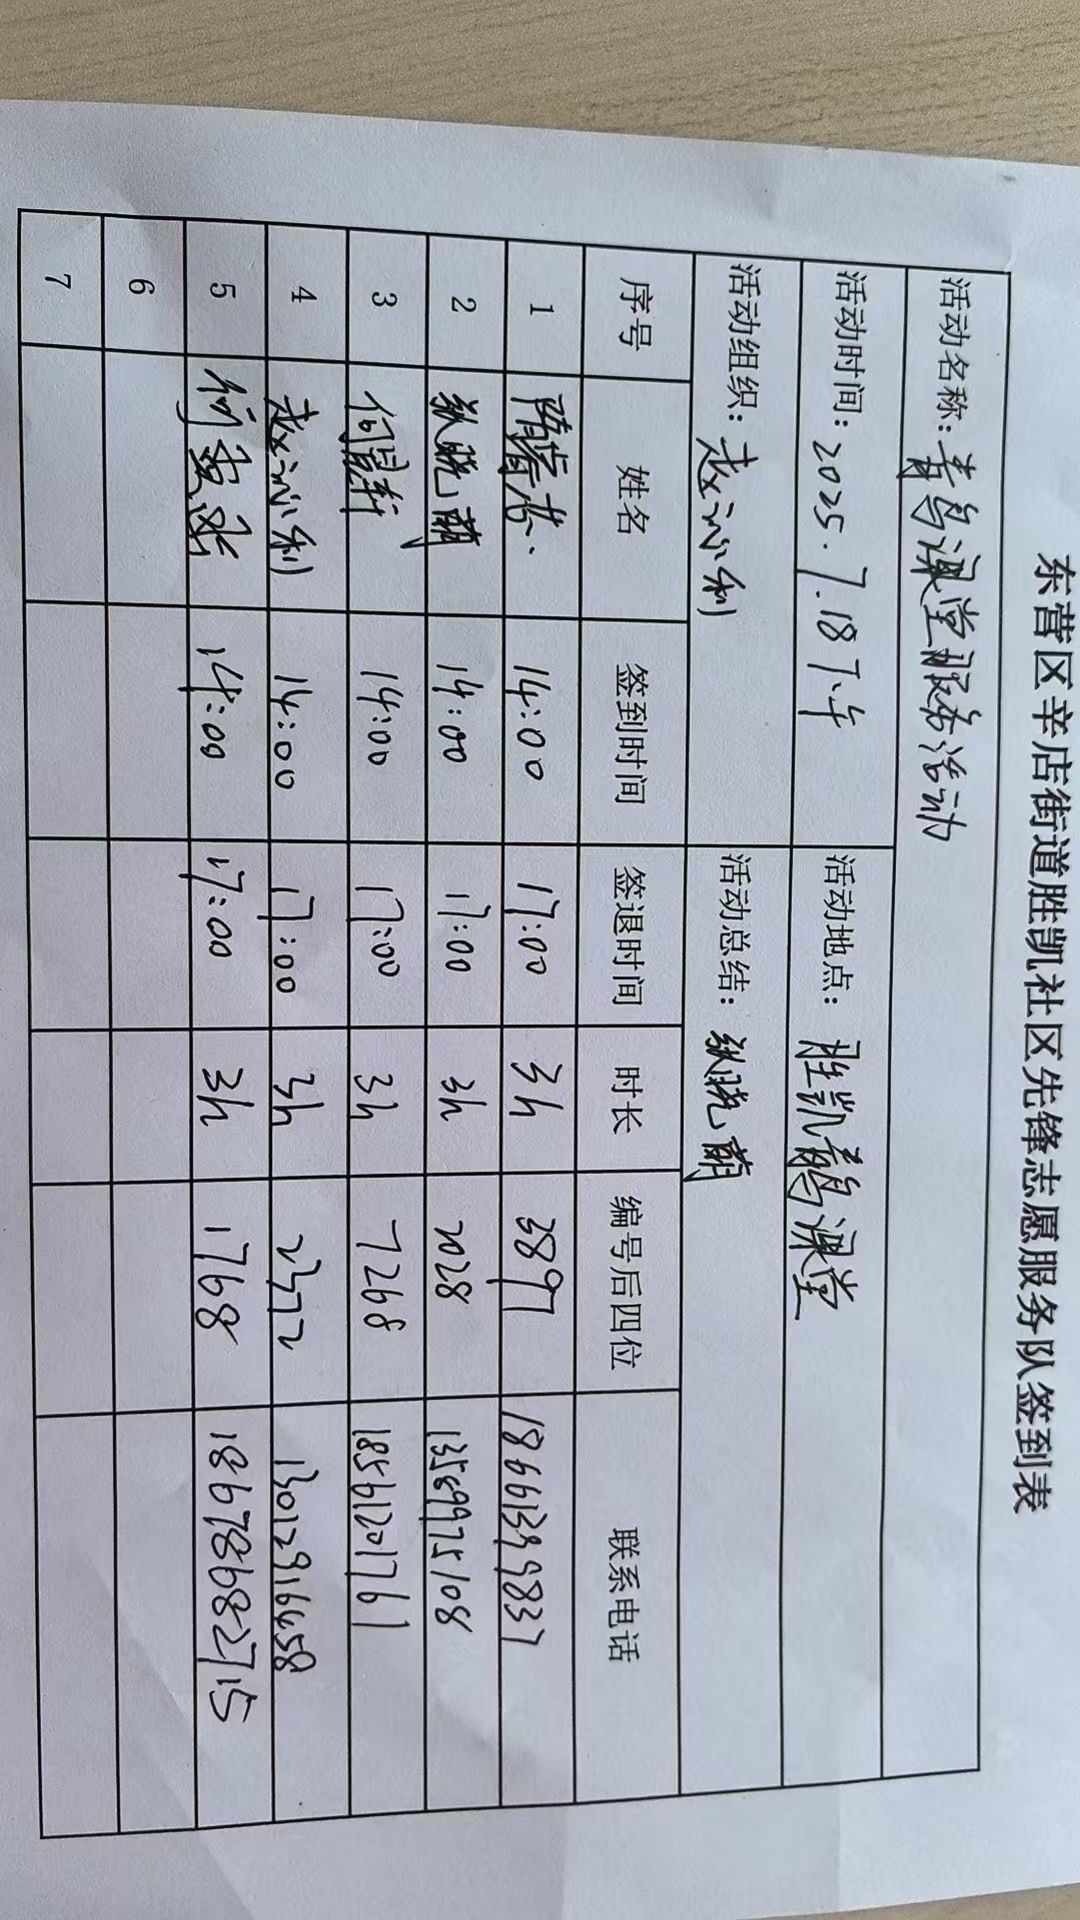 东营区辛店街道胜凯社区先锋志愿服务队签到表
活动名称：青鸟课堂服务活动
活动时间：2025.7.18下午 活动地点：胜凯青鸟课堂
活动组织：赵沁利 活动总结：张晓萌
序号 姓名 签到时间 签退时间 时长 编号后四位 联系电话
1 14:00 17:00 3h 3897 18661399837
2 张晓萌 14:00 17:00 3h 2028 13589975108
3 14:00 17:00 3h 7268 18561201761
4 赵沁利 14:00 17:00 3h 2372
5 14:00 17:00 3h 1768 18678682715
6
7